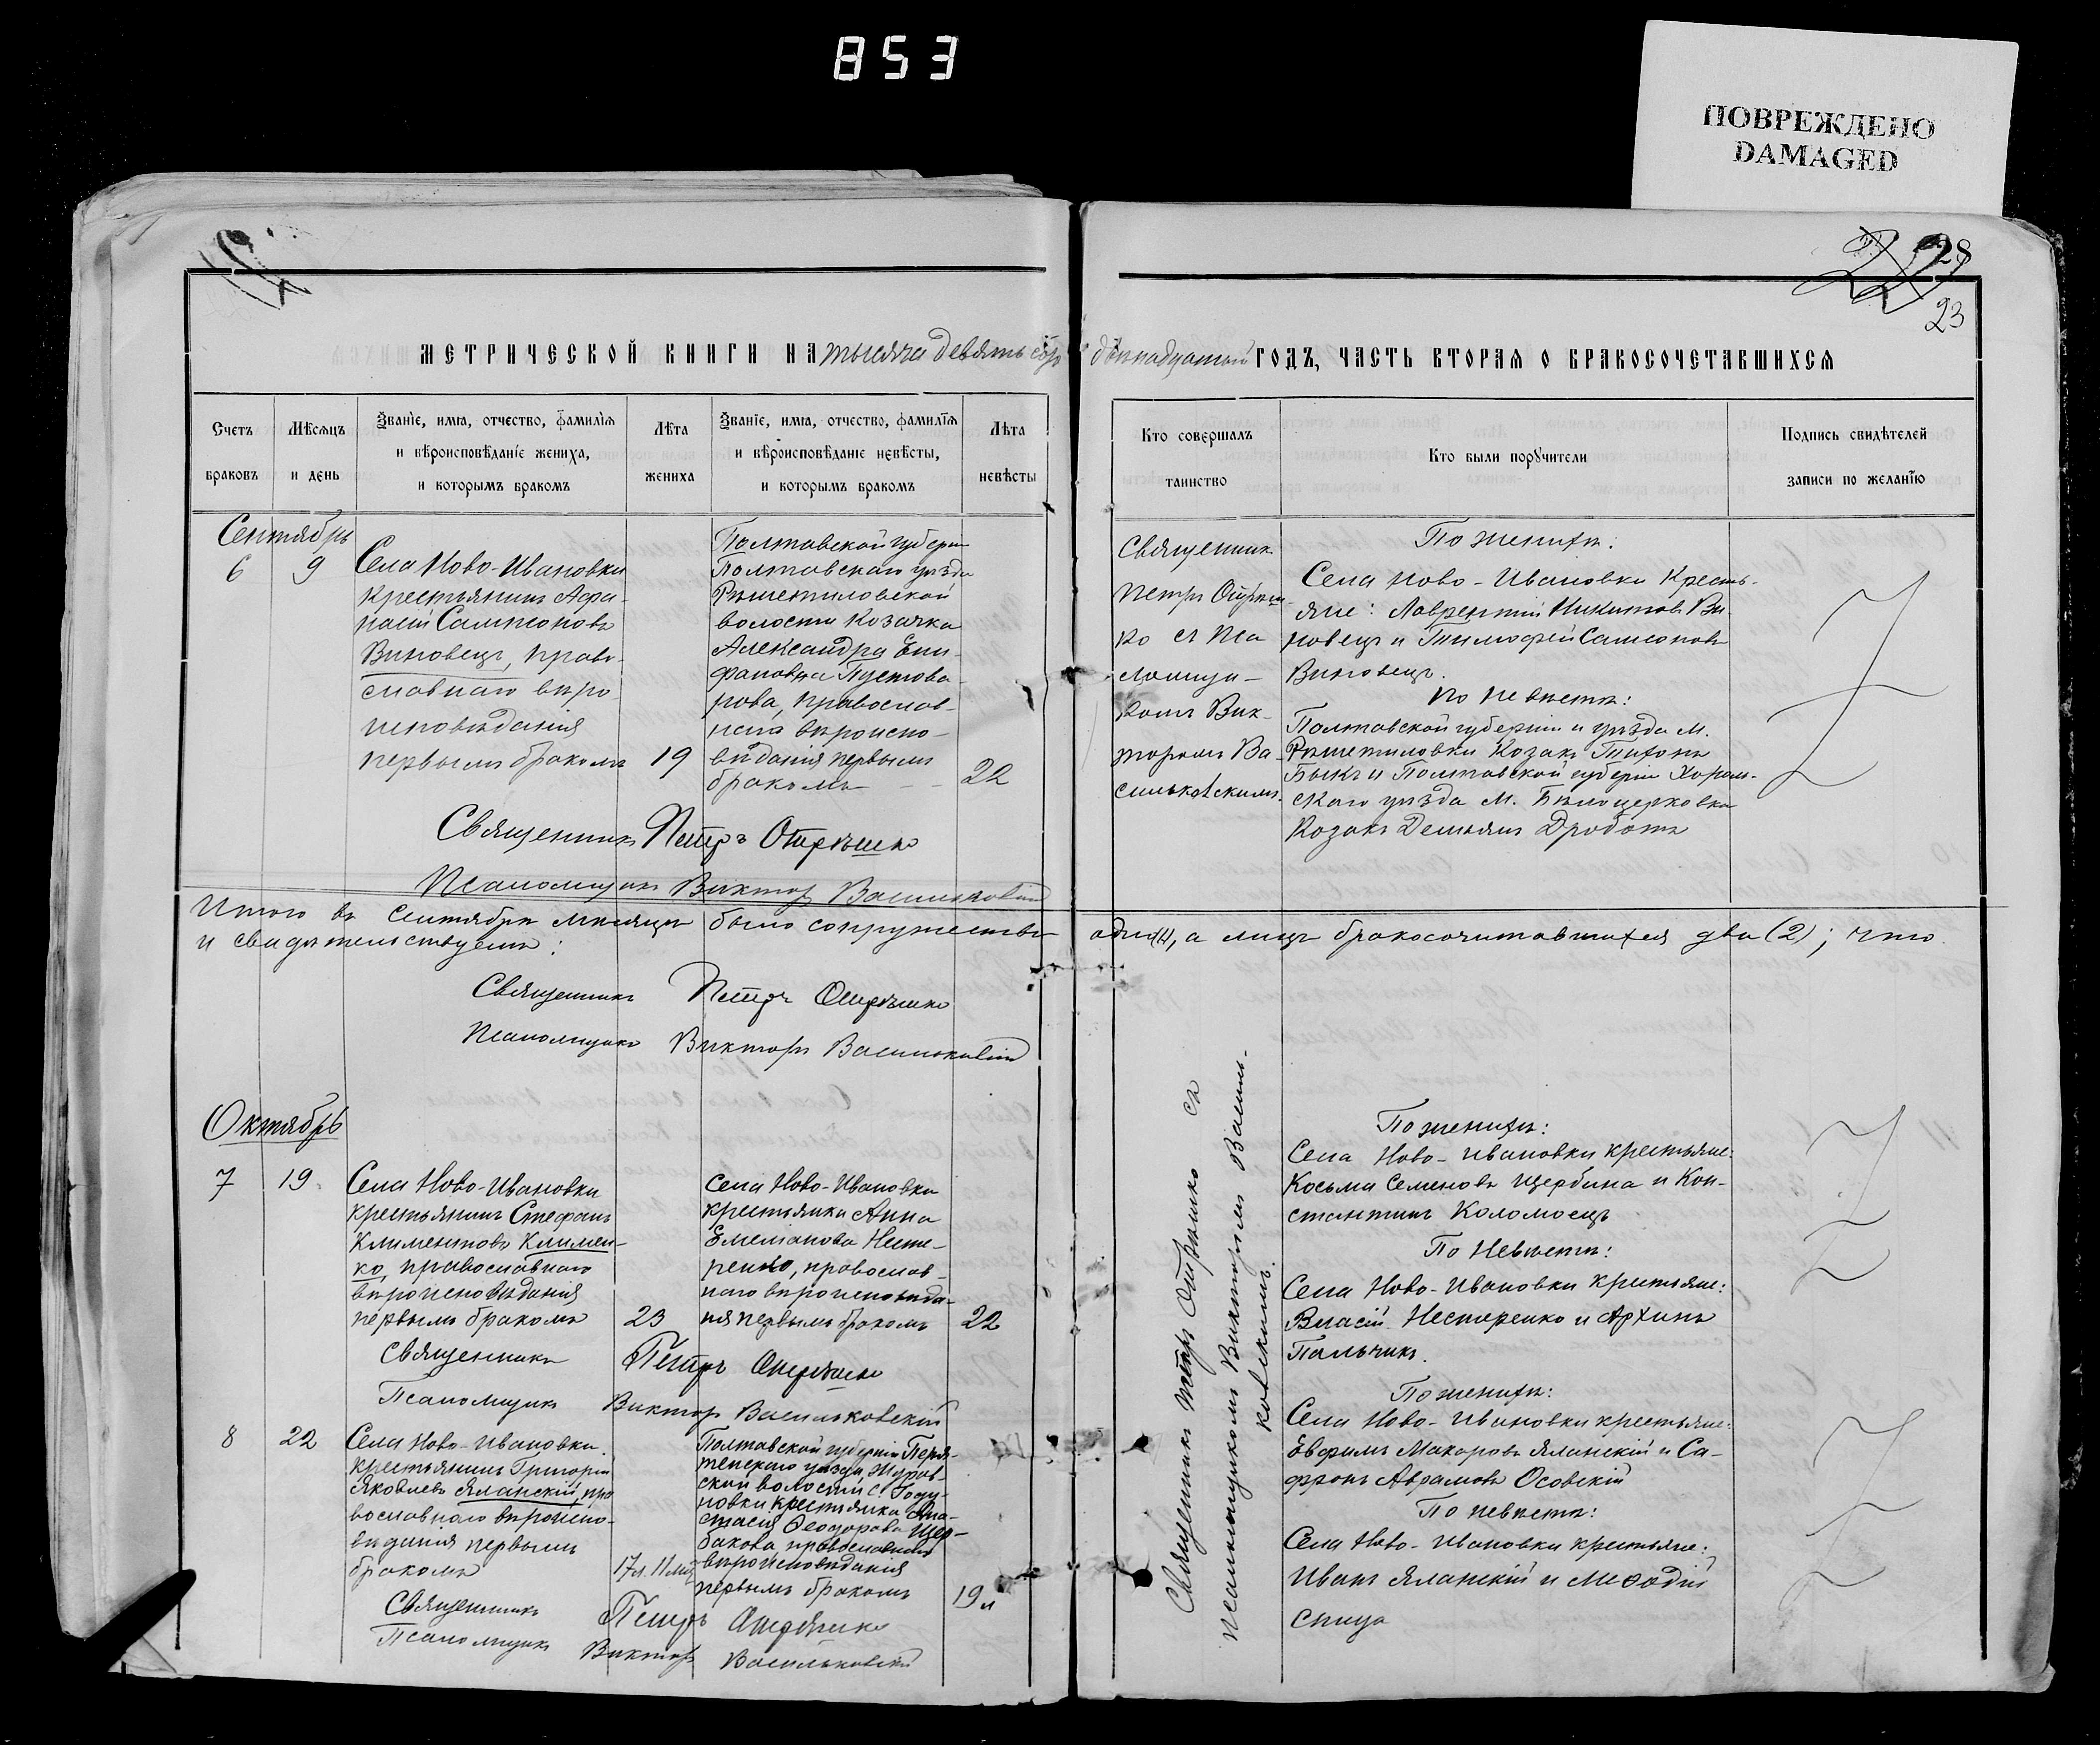 853
ПОВРЕЖДЕНО
DAMAGED
28
23
МЕТРИЧЕСКОЙ КНИГИ НА тысяча девятьсотъ
двѣнадцатый ГОДЪ, ЧАСТЬ ВТОРАЯ О БРАКОСОЧЕТАВШИХСЯ
Счетъ браковъ
Мѣсяцъ и день
Званіе, имя, отчество, фамилія и вѣроисповѣданіе жениха, и которымъ бракомъ
Лѣта жениха
Званіе, имя, отчество, фамилія и вѣроисповѣданіе невѣсты, и которымъ бракомъ
Лѣта невѣсты
Кто совершалъ таинство
Кто были поручители
Подпись свидѣтелей записи по желанію
Сентябрь
6
9
Села Ново-Ивановки
крестьянинъ Афа-
насій Сампсоновъ
Виновецъ, право-
славнаго вѣро
исповѣданія
первымъ бракомъ
19
Полтавской губерніи
Полтавскаго уѣзда
Рѣшетиловской
волости козачка
Александра Епи-
фановна Пустова-
рова, православ-
наго вѣроиспо-
вѣданія первымъ
бракомъ
22
Священникъ
Петръ Отрѣш-
ко съ Пса
ломщи-
комъ Вик-
торомъ Ва-
сильковскимъ.
По женихѣ:
Села Ново-Ивановки кресть-
яне: Лаврентій Никитовъ Ви-
новецъ и Тимофей Сампсоновъ
Виновецъ.
По невѣстѣ:
Полтавской губерніи и уѣзда М.
Рѣшетиловки козакъ Тихонъ
Быкъ и Полтавской губерніи Хороль-
скаго уѣзда М. Бѣлоцерковки
Козакъ Демьянъ Дроботъ
Священникъ Петръ Отрѣшко
Псаломщикъ Викторъ Васильковскій
Итого въ Сентябрѣ мѣсяцѣ было супружествъ одно (1), а лицъ бракосочитавшихся два (2); что
и свидѣтельствуемъ:
Священникъ Петръ Отрѣшко
Псаломщикъ Викторъ Васильковскій
Октябрь
7
19
Села Ново-Ивановки
крестьянинъ Стефанъ
Климентовъ Климен-
ко, православнаго
вѣроисповѣданія
первымъ бракомъ
23
Села Ново-Ивановки
крестьянка Анна
Емеліанова Несте-
ренко, православ-
наго вѣроисповѣда-
нія первымъ бракомъ
22
Священникъ Петръ Отрѣшко съ
псаломщикомъ Викторомъ Василь-
ковскимъ.
По женихѣ:
Села Ново-Ивановки крестьяне:
Косьма Семеновъ Щербина и Кон-
стантинъ Коломоецъ
По невѣстѣ:
Села Ново-Ивановки крестьяне:
Власій Нестеренко и Архипъ
Пальчикъ.
Священникъ Петръ Отрѣшко
Псаломщикъ Викторъ Васильковскій
8
22
Села Ново-Ивановки
крестьянинъ Григорій
Яковлевъ Яланскій, пра
вославнаго вѣроиспо-
вѣданія первымъ
бракомъ
17 л. 11 мѣс
Полтавской губерніи Пиря-
тинскаго уѣзда, Журав-
ской волости с.
новки крестьянка Ана-
стасія Ѳеодорова Щер-
бакова православнаго
вѣроисповѣданія
первымъ бракомъ
19 л
По женихѣ:
Села Ново-Ивановки крестьяне:
Евфимъ Макаровъ Яланскій и Са-
фронъ Аврамовъ Осовскій
По невѣстѣ:
Села Ново-Ивановки крестьяне:
Иванъ Яланскій и Меѳодій
Спица
Священникъ Петръ Отрѣшко
Псаломщикъ Викторъ Васильковскій